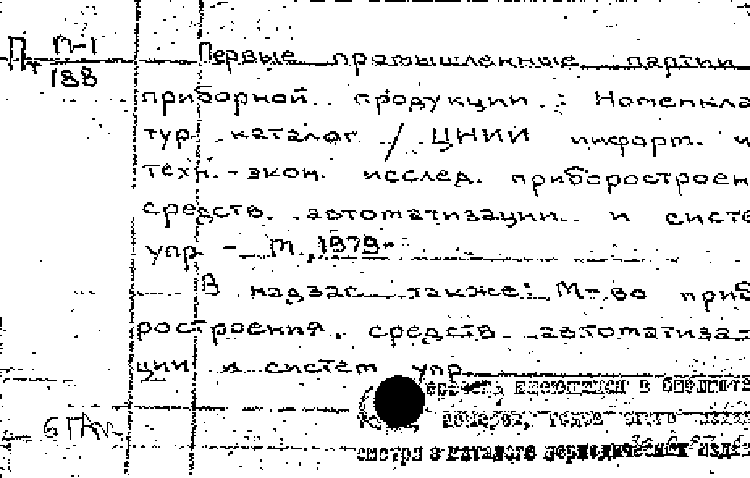 П П-1
188
Первые промышленные партии
приборной продукции : Номенкла
тур каталог / ЦНИИ информ. и
техн.-экон. исслед. приборостроен
средств автоматизации и систе
упр - М, 1979-
В надзаг также: М-во приб
ростроения, средств автоматиза
ции и систем упр
номеров, тома
смотри в каталоге периодических изда